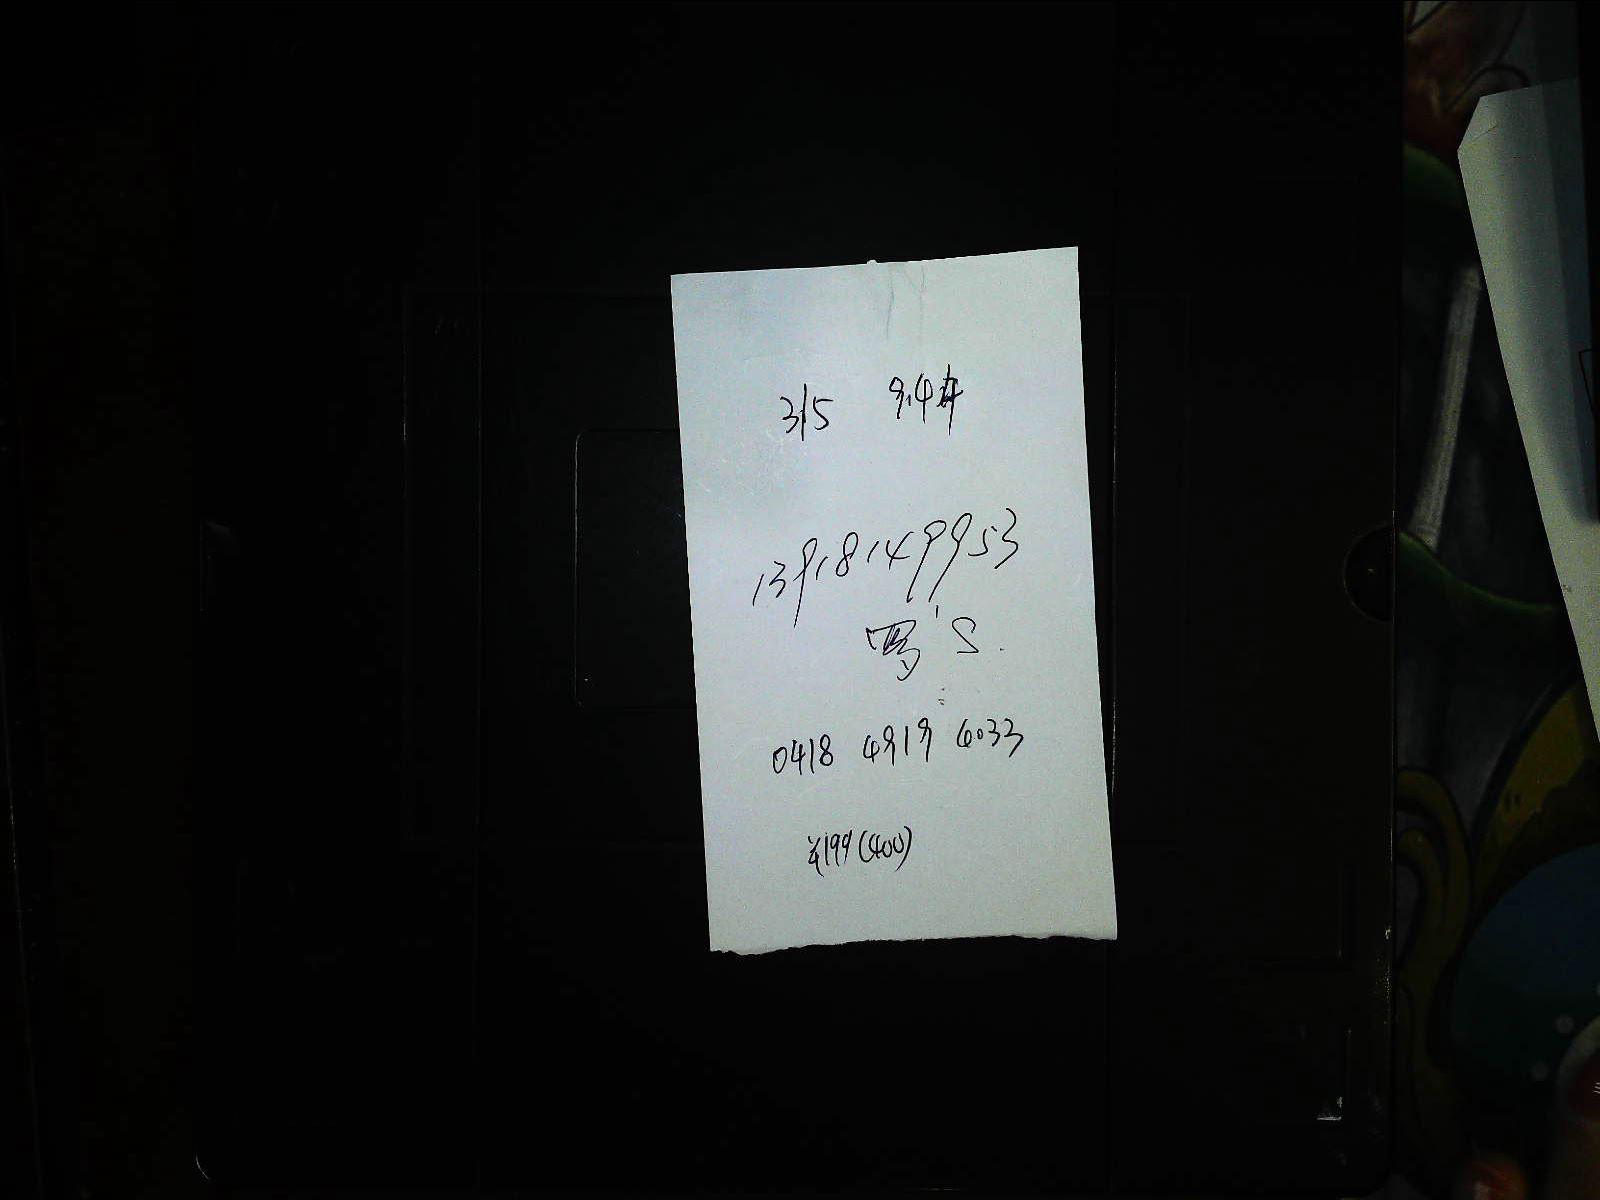 315 9.4
13918149953
S.
0418 4919 6033
¥199(400)